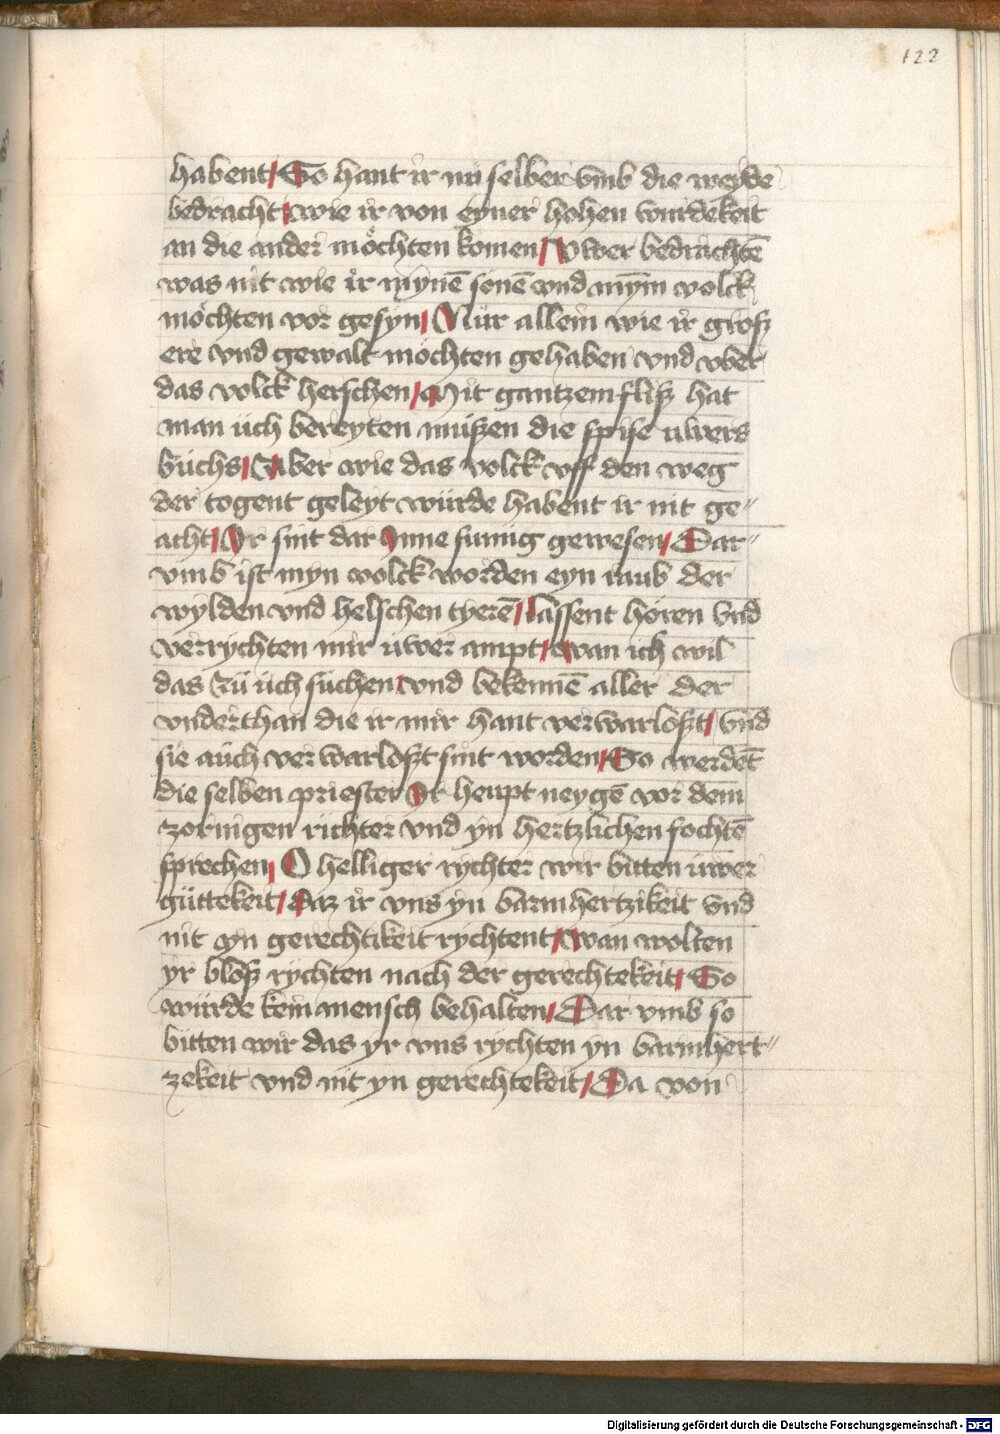 122
habent / So hant ir nü selber vmb die weyde
bedracht / wie ir von eyner hohen wurdekeit
an die ander möchten komen / Vwer bedrachtē
was nit wie ir mynē sonē vnd mym volck
möchten vor gesyn / Nür allein wie ir groß
ere vnd gewalt möchten gehaben vnd vber
das volck herschen / Mit gantzem fliß hat
man üch bereyten müßen die spise uwers
büchs / Aber wie das volck vff den weg
der togent geleyt würde habent ir nit ge"
acht / Ir sint dar Inne sumig gewesen / Dar"
vmb ist myn volck worden eyn raub der
wylden vnd helschen therē / lassent horen vnd
verrychten mir uwer ampt / wan ich wil
das zü üch süchen / vnd bekennē aller der
vnderthan die ir mir hant verwarloßt / vnd
sie aüch verwarloßt sint worden / So werdēt
die selben priester Ir heupt neygē vor dem
zornigen richter vnd yn hertzlichen fochtē
sprechen / O helliger rychter wir bitten uwer
güttekeit / Daz ir vns yn barmhertzikeit vnd
nit yn gerechtikeit rychtent / wan wolten
yr bloß rychten nach der gerechtekeit / So
würde kein mensch behalten / Dar vmb so
bitten wir das yr vns rychten yn barmhert"
zekeit vnd nit yn gerechtekeit / Da von
Digitalisierung gefördert durch die Deutsche Forschungsgemeinschaft - DFG